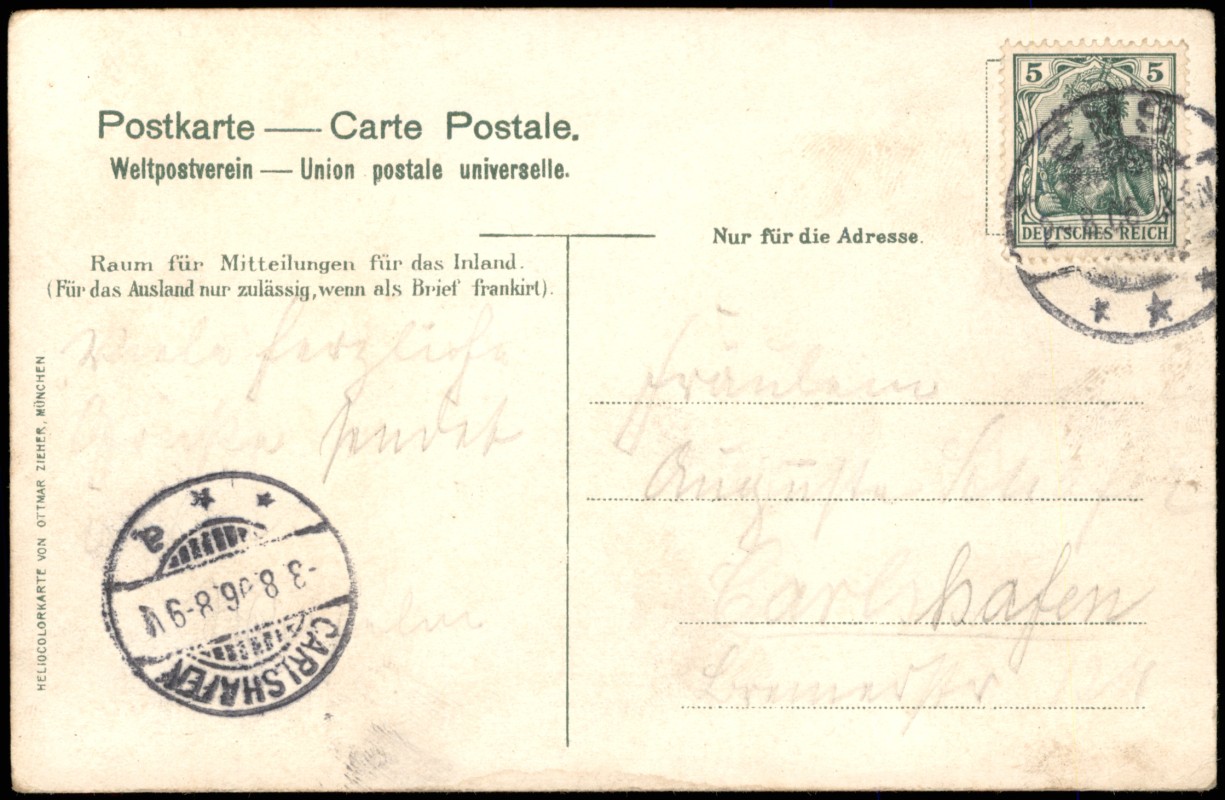 Postkarte — Carte Postale.
Weltpostverein — Union postale universelle.
Raum für Mitteilungen für das Inland.
(Für das Ausland nur zulässig, wenn als Brief frankirt).
Viele herzliche
Grüße sendet
HELIOCOLORKARTE VON OTTMAR ZIEHER, MÜNCHEN
CARLSHAFEN
-3.8.06.8-9V
a
5 5
DEUTSCHES REICH
Nur für die Adresse.
Fräulein
Auguste
Carlshafen